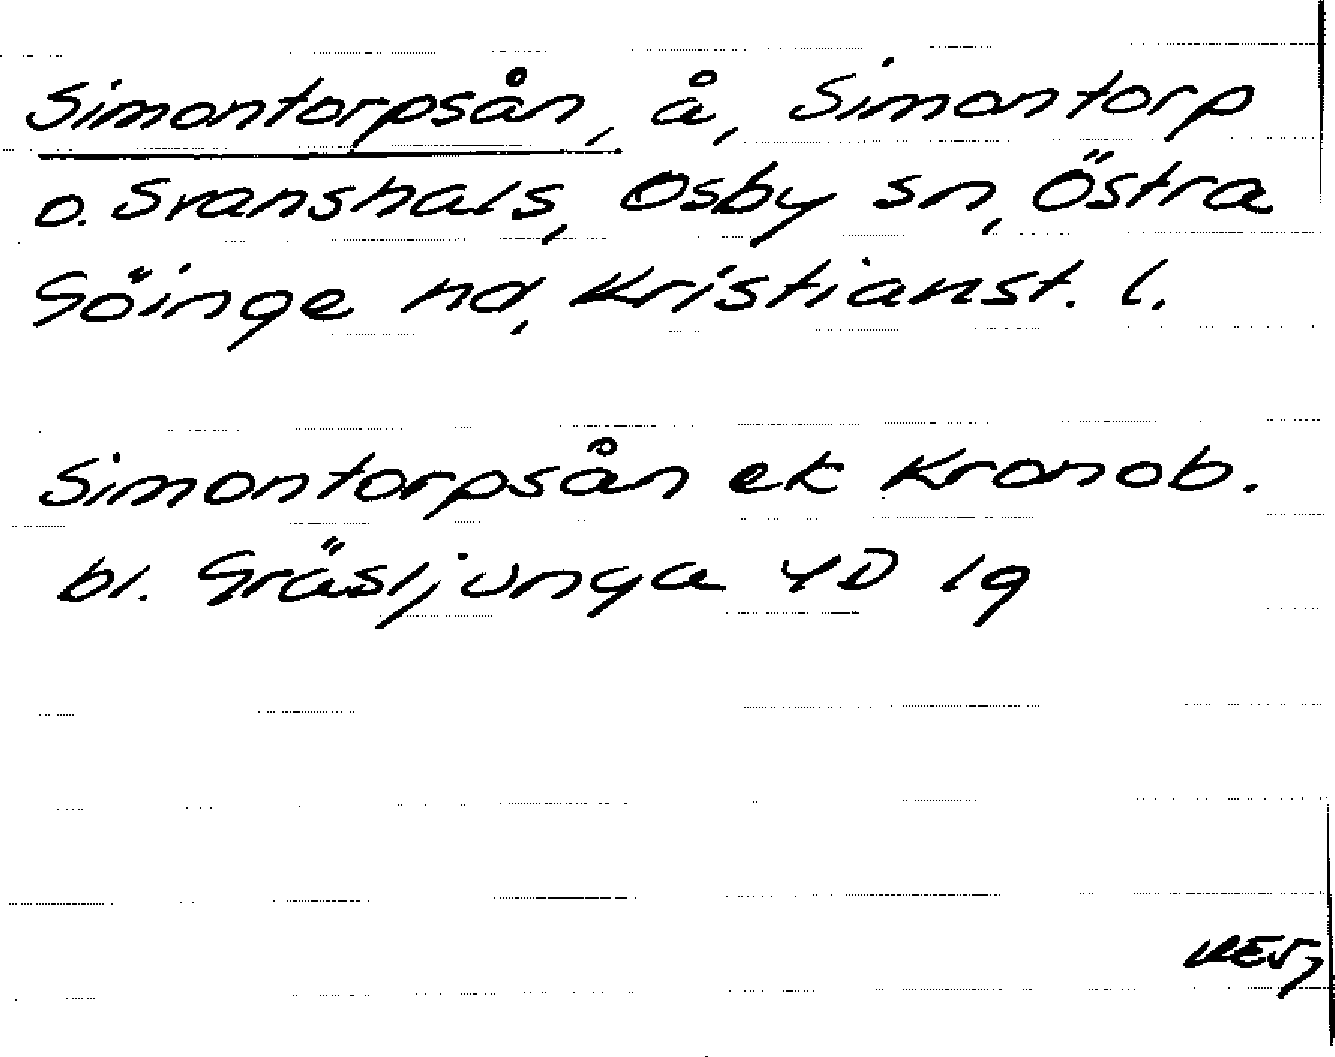 Simontorpsån, å, Simontorp
o. Svanshals, Osby sn, Östra
Göinge hd, Kristianst. l.
Simontorpsån ek Kronob.
bl. Gräsljunga 4D 1g